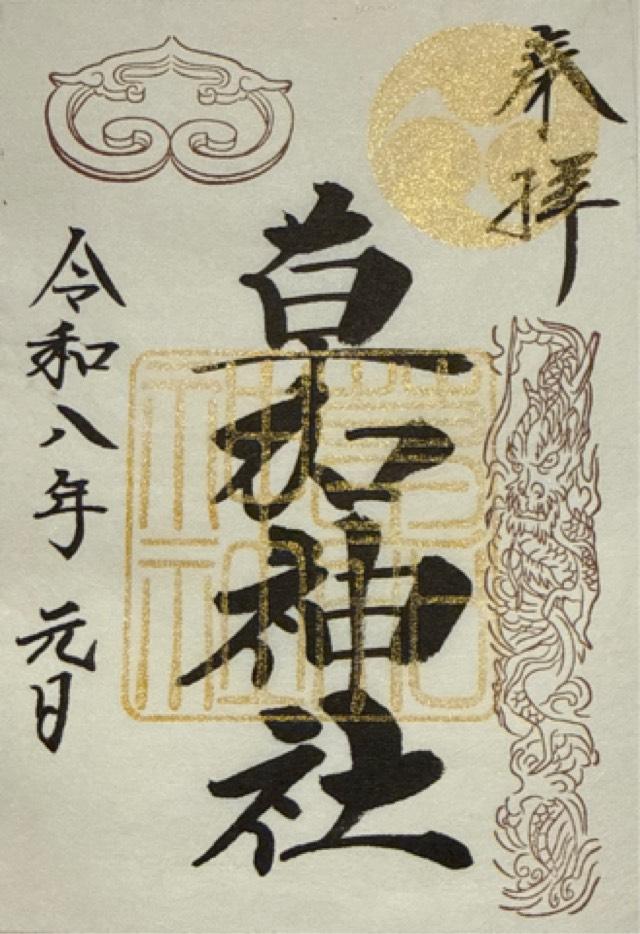 奉拝
草加神社
令和八年 元日